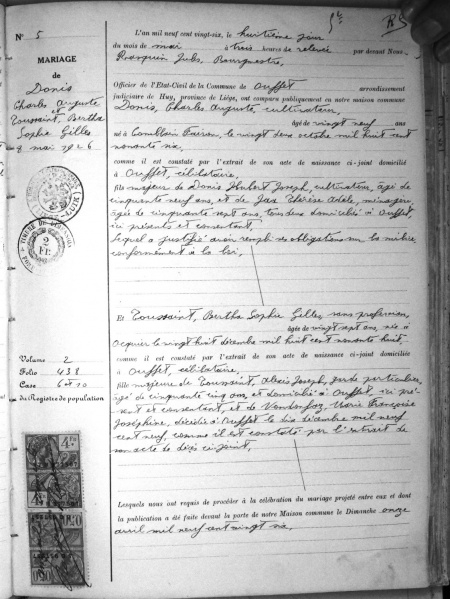 N° 5
MARIAGE
de
Donis
Charles Auguste
et
Toussaint, Bertha
Sophie Gilles
8 mai 1926
L'an mil neuf cent vingt-six, le huitième jour
du mois de mai à trois heures de relevée par devant Nous
Jules, Bourgmestre,
Officier de l'Etat-Civil de la Commune de Ouffet arrondissement
judiciaire de Huy, province de Liége, ont comparu publiquement en notre maison commune
Donis, Charles Auguste, cultivateur,
âgé de vingt neuf ans
né à Comblain Fairon, le vingt deux octobre mil huit cent
nonante six,
comme il est constaté par l'extrait de son acte de naissance ci-joint domicilié
à Ouffet, célibataire,
fils majeur de Donis Hubert Joseph, cultivateur, âgé de
cinquante neuf ans, et de Jax Thérèse Adèle, ménagère,
âgée de cinquante sept ans, tous deux domiciliés à Ouffet,
ici présents et consentant,
lequel a justifié avoir rempli ses obligations sur la milice
conformément à la loi,
Et Toussaint, Bertha Sophie Gilles, sans profession,
âgée de vingt sept ans, née à
le vingt huit décembre mil huit cent nonante huit,
comme il est constaté par l'extrait de son acte de naissance ci-joint domiciliée
à Ouffet, célibataire,
fille majeure de Toussaint, Alexis Joseph, garde particulier,
âgé de cinquante cinq ans, et domicilié à Ouffet, ici pré-
sent et consentant, et de Marie Françoise
Joséphine, décédée à Ouffet le dix décembre mil neuf
cent neuf, comme il est constaté par l'extrait de
son acte de décès ci-joint,
Volume 2
Folio 438
Case 6 et 10
du Registre de population
Lesquels nous ont requis de procéder à la célébration du mariage projeté entre eux et dont
la publication a été faite devant la porte de notre Maison commune le Dimanche onze
avril mil neuf cent vingt six,
2
FR.